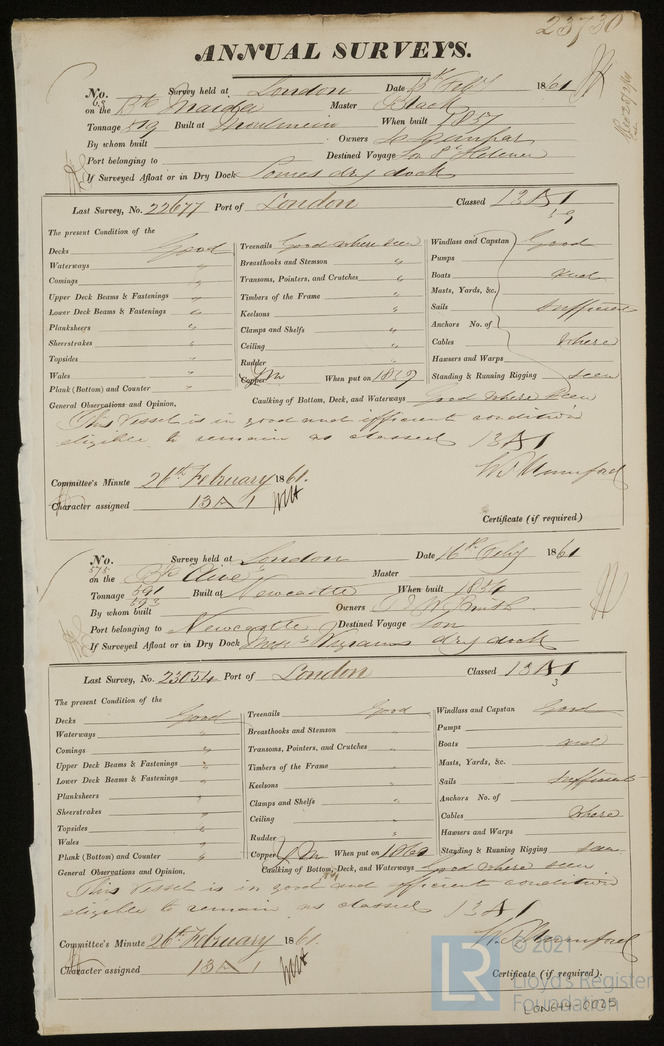 23730
ANNUAL SURVEYS.
No. 63 Survey held at London Date Feby 1861
on the Bk Maida Master Black
Tonnage 519 Built at Moulmein When built 1837
By whom built Owners
Port belonging to Destined Voyage For St Helena
If Surveyed Afloat or in Dry Dock dry dock
Last Survey, No. 22677 Port of London Classed 13 A 1
The present Condition of the
Decks Good Treenails Good where seen Windlass and Capstan Good
Waterways " Breasthooks and Stemson " Pumps
Comings " Transoms, Pointers, and Crutches " Boats and
Upper Deck Beams & Fastenings " Timbers of the Frame " Masts, Yards, &c.
Lower Deck Beams & Fastenings " Keelsons " Sails sufficient
Planksheers " Clamps and Shelfs " Anchors No. of
Sheerstrakes " Ceiling " Cables where
Topsides " Rudder " Hawsers and Warps
Wales " Copper YM When put on Standing & Running Rigging seen
Plank (Bottom) and Counter " Caulking of Bottom, Deck, and Waterways Good where seen
General Observations and Opinion,
This Vessel is in good and efficient condition
eligible to remain as classed 13 A 1
W. S. Mumford
Committee's Minute 26th February 1861.
Character assigned 13 A 1
Certificate (if required)
No. 575 Survey held at London Date 16th Feby 1861
on the Bk Olive Master
Tonnage 591 593 Built at Newcastle When built
By whom built Owners Smith
Port belonging to Newcastle Destined Voyage
If Surveyed Afloat or in Dry Dock dry dock
Last Survey, No. 23054 Port of London Classed 13 A 1
3
The present Condition of the
Decks Good Treenails Good Windlass and Capstan Good
Waterways " Breasthooks and Stemson " Pumps
Comings " Transoms, Pointers, and Crutches " Boats and
Upper Deck Beams & Fastenings " Timbers of the Frame " Masts, Yards, &c.
Lower Deck Beams & Fastenings " Keelsons " Sails sufficient
Planksheers " Clamps and Shelfs " Anchors No. of
Sheerstrakes " Ceiling " Cables where
Topsides " Rudder " Hawsers and Warps
Wales " Copper YM When put on 1860 Standing & Running Rigging seen
Plank (Bottom) and Counter " Caulking of Bottom, Deck, and Waterways Good where seen
General Observations and Opinion,
This Vessel is in good and efficient condition
eligible to remain as classed 13 A 1
W. S. Mumford
Committee's Minute 26th February 1861.
Character assigned 13 A 1
Certificate (if required).
LR © 2021
Lloyd's Register
Foundation
LON644-0025